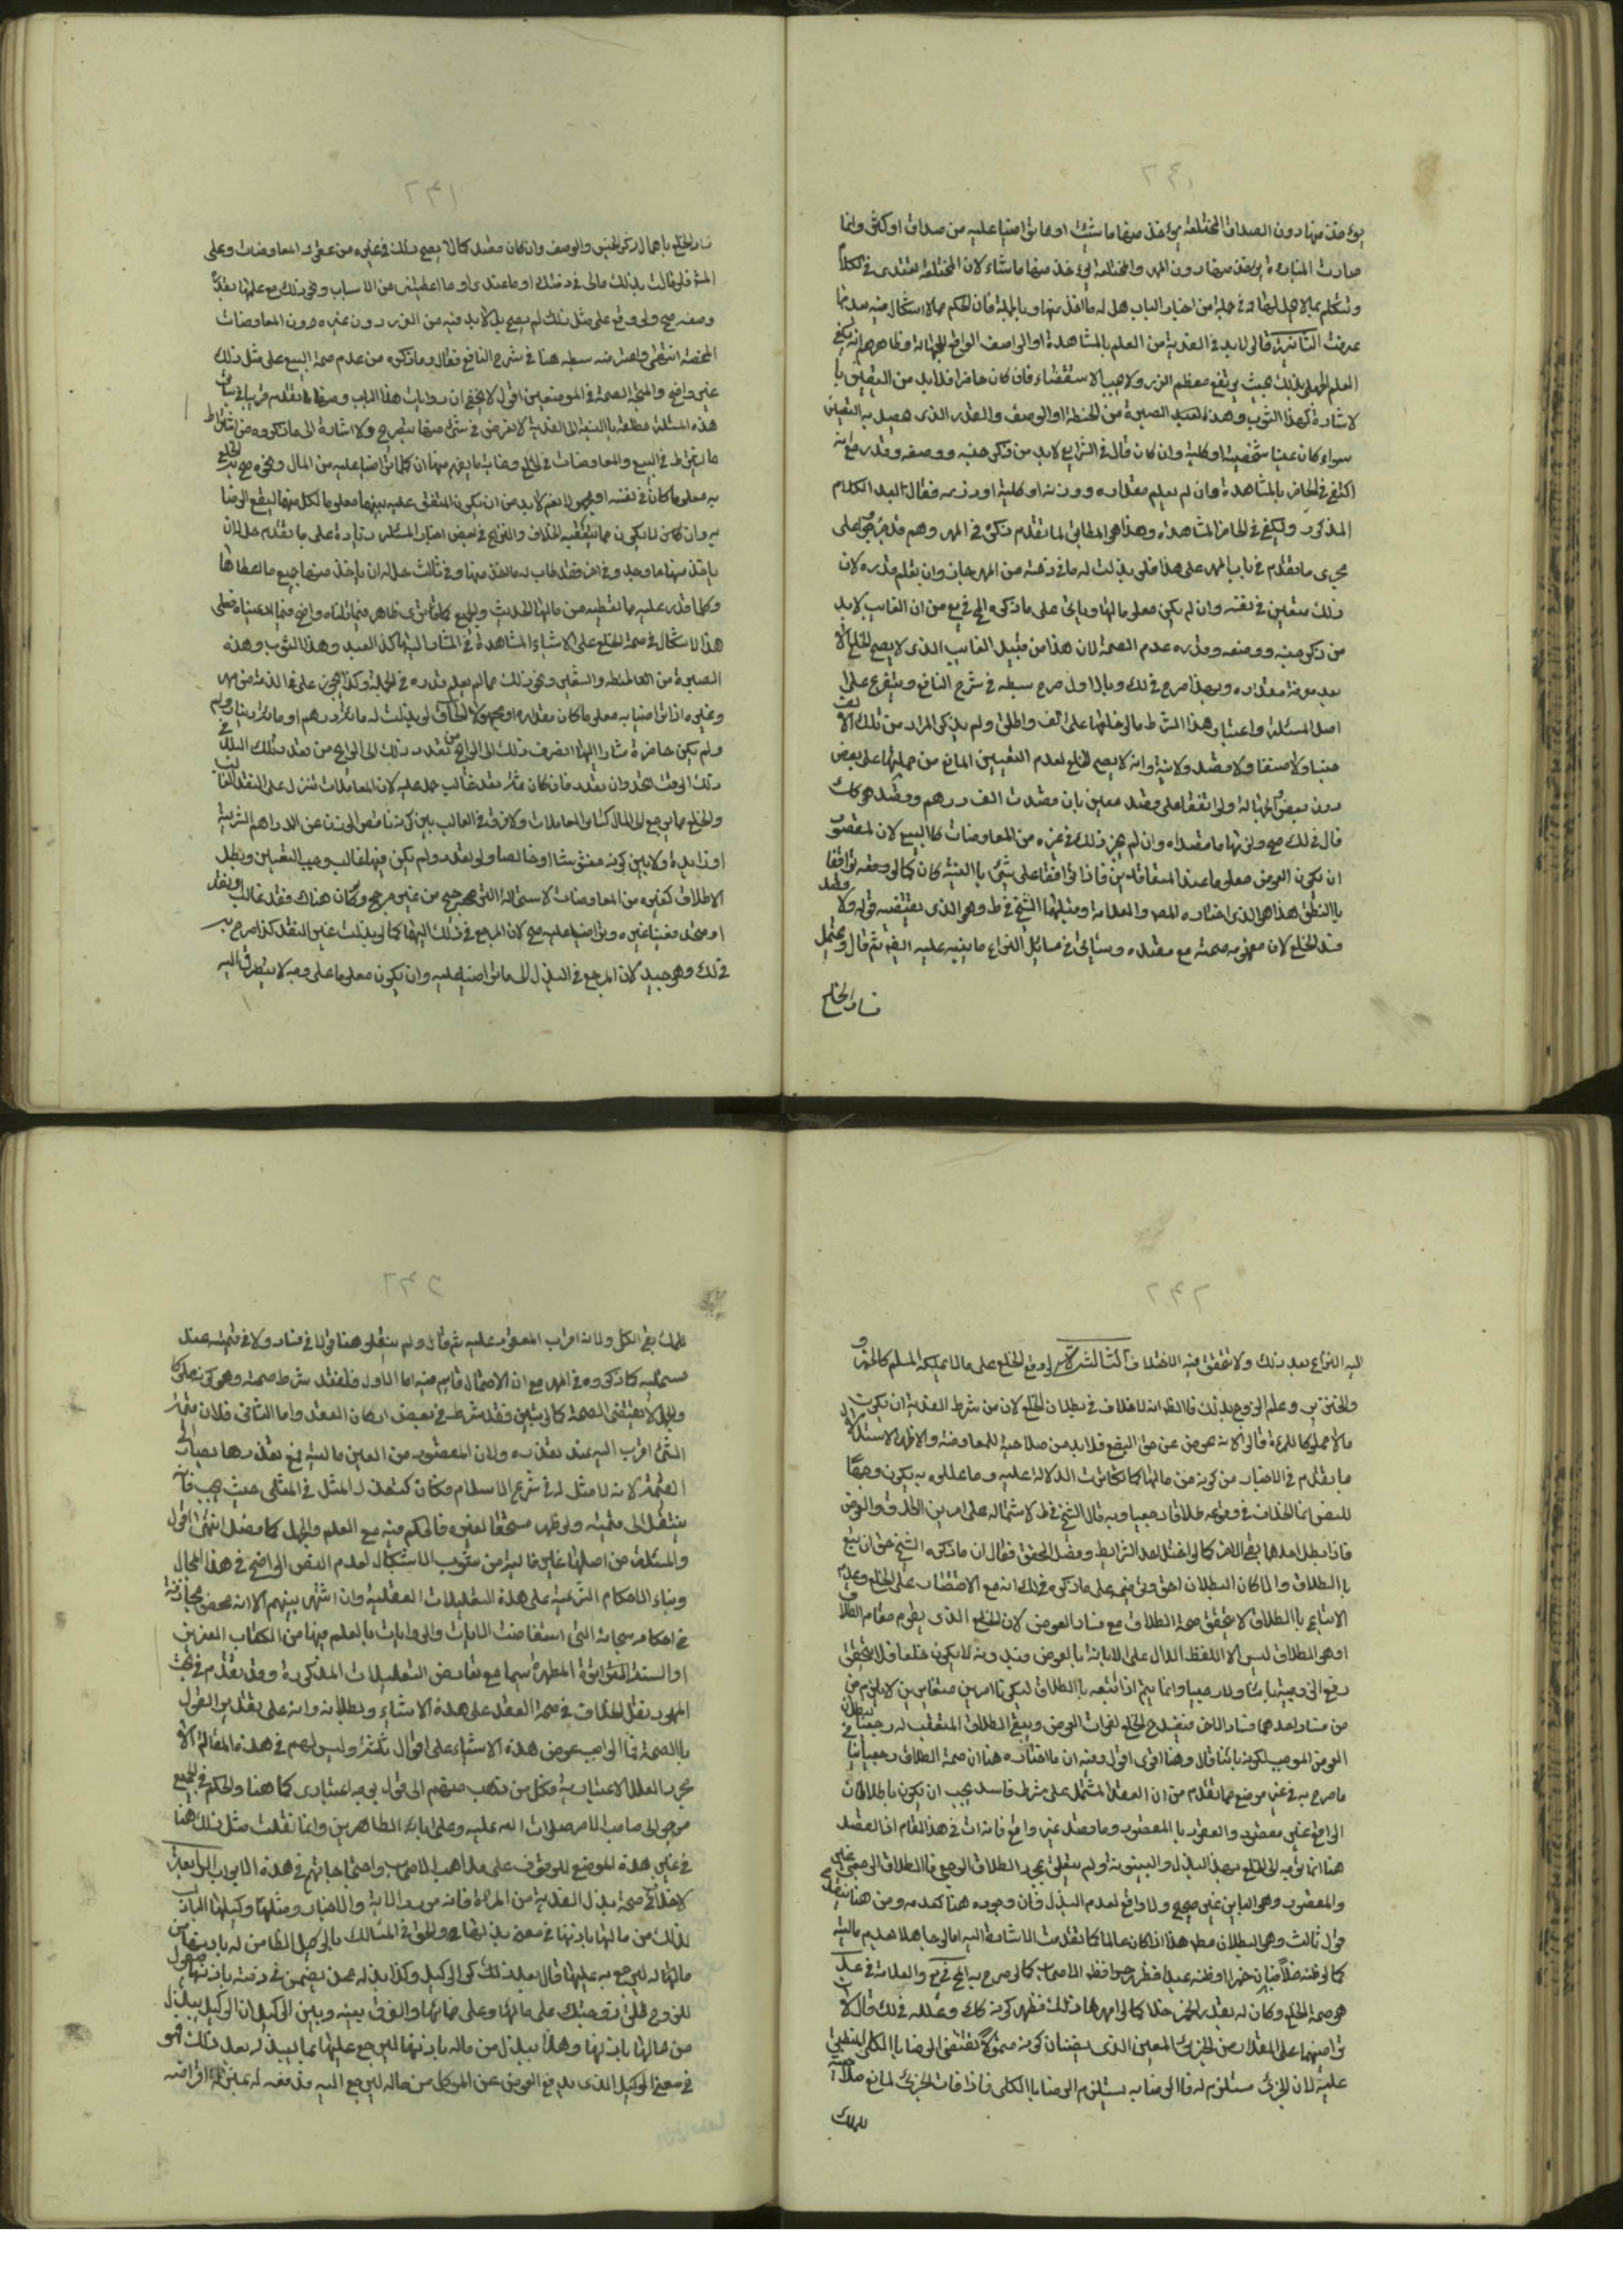 يؤخذ منها دون الصداق والمختلعة يؤخذ منها ما شئت او ما تراضيا عليه من صداق او اكثر وانما
صارت المباراة يؤخذ منها دون المهر والمختلعة يؤخذ منها ما شاء لان المختلعة تعتدى فى الكلام
وتتكلم بما لا يحل لها وفى جملة من اخبار الباب حل له ما اخذ منها وبالجملة فان الحكم مما لا اشكال فيه بعد ما
عرفت الثانية قالوا لا بد فى الفدية من العلم بالمشاهدة او الوصف الرافع للجهالة وظاهرهم انه يكفى
العلم بحيث يرتفع معظم الغرر ولا يجب الاستقصاء فان كان حاضرا فلا بد من التعيين با
لاشارة كهذا الثوب وهذا العبد الصبرة من الحنطة او الوصف والقدر الذى يحصل به التعيين
سواء كان عينا شخصية او كلية وان كان قال فى الشرايع لا بد من ذكر جنسه ووصفه وقدره مع انه
اكتفى فى الحاضر بالمشاهدة وان لم يعلم مقداره ووزنه او كليته او ذرعه فقال بعد الكلام
المذكور ويكفى فى الحاضر المشاهدة وهذا هو المطابق لما تقدم ذكره فى المهر وهم قد جروا على
مجرى ما تقدم فى باب المهر على هذا فلو بذلت له ما فى ذمته من المهر جاز وان لم يعلم قدره لان
ذلك متعين فى نفسه وان لم يكن معلوما لها وياتى على ما ذكره الح فى يع من ان الغايب لا بد
من ذكر جنسه ووصفه وقدره عدم الصحة لان هذا من قبيل الغايب الذى لا يصح الخلع الا
بعد معرفة مقداره وبهذا صرح فى لك وبالاول صرح سبطه فى شرح النافع ويتفرع على
اصل المسئلة واعتبار هذا الشرط ما لو خلعها على الف واطلق ولم يذكر المراد من تلك الالف
جنسا ولا صنفا ولا قصد ولا نية وانه لا يصح الخلع لعدم التعيين المانع من حملها على بعض
دون بعض للجهالة ولو اتفقا على قصد معين بان قصدت الف درهم وقصد هو كذلك
قال فى لك صح ولزمها ما قصداه وان لم يجز ذلك فى غيره من المعاوضات كالبيع لان المقصود
ان يكون العوض معلوما عند المتعاقدين فاذا توافقا على شئ بالنية كان كما لو توافقا
بالنطق هذا هو الذى اختاره المص والعلامة وقبلهما الشيخ فى ط وهو الذى يقتضيه قوله ولا قصد
فسد الخلع لان مفهومه صحته مع مقصده وسياتى فى مسائل النزاع ما ينبه عليه ايضا ثم قال ويحتمل
فساد الخلع
فساد الخلع باهمال ذكر الجنس والوصف وان كان مقصد كما لا يصح ذلك فى غيره من عقود المعاوضات وعلى
المش فلو قالت بذلت مالى فى ذمتك او ما عندى او ما اعطيتنى من الاسباب ونحو ذلك مع علمهما بقدره
ووصفه صح ولو وقع على مثل ذلك لم يصح بل لا بد فيه من الغرر دون غيره دون المعاوضات
المحضة انتهى واعترضه سبطه هنا فى شرح النافع فقال وما ذكره من عدم صحة البيع على مثل ذلك
غير واضح والمتجه الصحة فى الموضعين اقول لا يخفى ان روايات هذا الباب ومنها ما تقدم قريبا فى سابق
هذه المسئلة مطلقة بالنسبة الى الفدية لا تعرض فى شئ منها بتصريح ولا اشارة الى ما ذكروه من اشتراط
ما يشترط فى البيع والمعاوضات فى الخلع وغاية ما يفهم منها ان كلما تراضيا عليه من المال ونحوه صح به الخلع
معلوما كان فى نفسه او مجهولا نعم لا بد من ان يكون المتفق عليه بينهما معلوما لكل منهما ليقع الرضا
به وان كان لا يكون مما يتعقبه الخلاف والنزاع فى بعض اخبار المسئلة زيادة على ما تقدم حل له ان
ياخذ منها ما وجد وفى اخر فقد طاب له ما اخذ منها وفى ثالث حل له ان ياخذ منها جميع ما اعطاها
وكلما قدر عليه مما تعطيه من مالها الحديث والجميع كما ترى ظاهر فيما قلناه واضح فيما ادعيناه فعلى
هذا لا اشكال فى صحة الخلع على الاشياء المشاهدة فى المشار اليها كهذا العبد وهذا الثوب وهذه
الصبرة من الحنطة والشعير ونحو ذلك مما لم يعلم قدره فى الجملة وكذا يجوز على ما فى الذمة من مهر
وغيره اذا تراضيا به معلوما كان مقداره او مجهولا لو بذلت له مائة درهم او مائة دينار ولم
ولم يكن حاضرة مشارا اليها انصرف ذلك الى الرايج من نقد بذلك البلد فى
ذلك الوقت اتحد وان تعدد فان كان ثم نقد غالب حمل عليه لان المعاملات تنزل على النقد الغالب
والخلع مما يرجع الى المال كسائر المعاملات ولا فرق فى الغالب بين كونه ناقص الوزن عن الدراهم الشرعية
او زايدة ولا بين كونه مغشوشا او خالصا ولو تعدد ولم يكن فيها غالب وجب التعيين وبطل
الاطلاق كغيره من المعاوضات لاستحالة الترجيح من غير مرجح ولو كان هناك نقد غالب او نقد
او متحد فعينا غيره وتراضيا عليه صح لان المرجع فى ذلك اليهما كما لو بذلت غير النقد كذا صرح به
فى لك وهو جيد لان المرجع فى البذل الى ما تراضيا عليه وان يكون معلوما على وجه لا يتطرق اليه
اليه النزاع بعد ذلك ولا يتحقق فيه الاختلاف الثالثة لو وقع الخلع على ما لا يملكه المسلم كالخمر و
والخنزير وعلم الزوج بذلك فالظ انه لا خلاف فى بطلان الخلع لان من شرط الفدية ان يكون
مالا مملوكا للمرءة قالوا لانه عوض عن حق البضع فلا بد من صلاحيته للمعاوضة والاظهر الاستدلال
ما تقدم فى الاخبار من كونه من مالها كما تكاثرت الدلالة عليه وما عللوه به يكون وجها
للنص انما الخلاف فى وقوعه طلاقا رجعيا وبه قال الشيخ فى ط لاشتماله على امرين الطلاق والعوض
فاذا بطل احدهما بقى الاخر كما لو اختل احد الشرايط وفصل المحقق فقال ان ما ذكره الشيخ حق ان تبع
بالطلاق والا كان البطلان احق وتوضيحه على ما ذكره فى لك انه مع الاقتصار على الخلع وعدم
الاتباع بالطلاق لا يتحقق صحة الطلاق مع فساد العوض لان الخلع الذى يقوم مقام الطلاق
او هو الطلاق ليس الا اللفظ الدال على الابانة بالعوض فبدونه لا يكون خلعا فلا يتحقق
رفع الزوجية باينا ولا رجعيا وانما يتم اذا اتبعه بالطلاق ليكونا امرين متغايرين لا يلزم من
من فساد احدهما فساد الاخر فيفسد الخلع لفوات العوض ويبقى الطلاق المتعقب له رجعيا لبطلان
العوض الموجب لكونه باينا قال وهذا اقوى اقول وفيه ان ما اختاره هنا ان صحة الطلاق رجعيا ينافى
ما صرح به فى غير موضع مما تقدم من ان العقد المشتمل على شرط فاسد يجب ان يكون باطلا لان
الواقع غير مقصود والعقود بالمقصود وما قصد غير واقع فانه ات فى هذا المقام اذ القصد
هنا انما توجه الى الخلع بهذا البذل والبينونة ولم يتعلق بمجرد الطلاق الرجعى فالطلاق الرجعى غير
والمقصود وهو الباين غير صحيح ولا واقع لعدم البذل فان وجوده هنا كعدمه ومن هنا ينقدح
قول ثالث وهو البطلان مطلقا هذا اذا كان عالما كما تقدمت الاشارة اليه اما لو جاهلا بعدم ماليته
كما لو ظنه خلا فبان خمرا او ظنه عبدا فظهر حرا فظ الاصحاب كما صرح به الح فى يع والعلامة فى عد
هو صحة الخلع وكان له بقدر الخمر خلا كما لو امهرها ذلك فظهر كونه كذلك وعلله فى لك قال لان
تراضيهما على المقدار من الجزئى المعين الذى يظنان كونه متمولا يقتضى الرضا بالكلى المنطبق
عليه لان الجزئى مستلزم له فالرضا به يستلزم الرضا بالكلى فاذا فات الجزئى لمانع صلاحيته
للملك
للملك بقى الكلى ولانه اقرب المعقود عليه ثم قال ولم ينقلوا هنا قولا فى فساده ولا فى قيمته عند
مستحليه كما ذكروه فى المهر مع ان الاحتمال قايم فيه اما الاول فلفقد شرط صحته وهو كونه مملوكا
والجهل لا يقتضى الصحة كما لو تبين فقد شرط فى بعض اركان العقد واما الثانى فلان قيمة
الشئ اقرب اليه عند تعذره ولان المقصود من العين مالية فمع تعذرها يصار الى
القيمة لانه لا مثل له فى شرع الاسلام فكان كتعذر المثل فى المثلى حيث يجب فانه
ينتقل الى قيمته ولو ظهر مستحقا لغيره فالحكم فيه مع العلم والجهل كما فصل انتهى اقول
والمسئلة من اصلها غير خالية من شوب الاشكال لعدم النص الواضح فى هذا المجال
وبناء الاحكام الشرعية على هذه التعليلات العقلية وان اشتهر بينهم الا انه محض مجازفة
فى احكامه سبحانه التى استفاضت الايات والروايات بالعلم فيها من الكتاب العزيز
او السنة النبوية المطهرة سيما مع تعارض التعليلات المذكورة وقد تقدم فى بحث
المهور نقل الخلاف فى صحة العقد على هذه الاشياء وبطلانه وانه على تقدير القول
بالصحة فما الواجب عوض هذه الاشياء على اقوال ثلثة وليس لهم فى هذه المقالة الا
مجرد العلل الاعتبارية فكل من ذهب منهم الى قول بوجه اعتبارى كما هنا والحكم فى الجميع
موجول الى صاحب الامر صلوات الله عليه وعلى ابائه الطاهرين وانما نقلت مثل ذلك هنا
فى غير هذه الموضع للوقوف على مذاهب الاصحاب واحتجاجاتهم فى هذه الابواب الرابعة
لا خلاف صحة بذل الفدية من المراة فانه مورد الاية والاخبار ومثلها وكيلها الباذل
لذلك من مالها باذنها فى معنى بذلها والحق فى المسالك بالوكيل الضامن له باذنها من
ماله ليرجع به عليها قال بعد ذلك كر الوكيل وكذا بذله ممن يضمن فى ذمته باذنها فيقول
للزوج طلق زوجتك على مائة وعلى ضمانها والفرق بينه وبين الوكيل ان الوكيل يبذل
من مالها باذنها وهذا يبذل من ماله باذنها ليرجع عليها بما يبذله بعد ذلك فهو
فى معنى الوكيل الذى يدفع العوض عن الموكل من ماله ليرجع اليه فدفعه له بمنزلة اقراضه